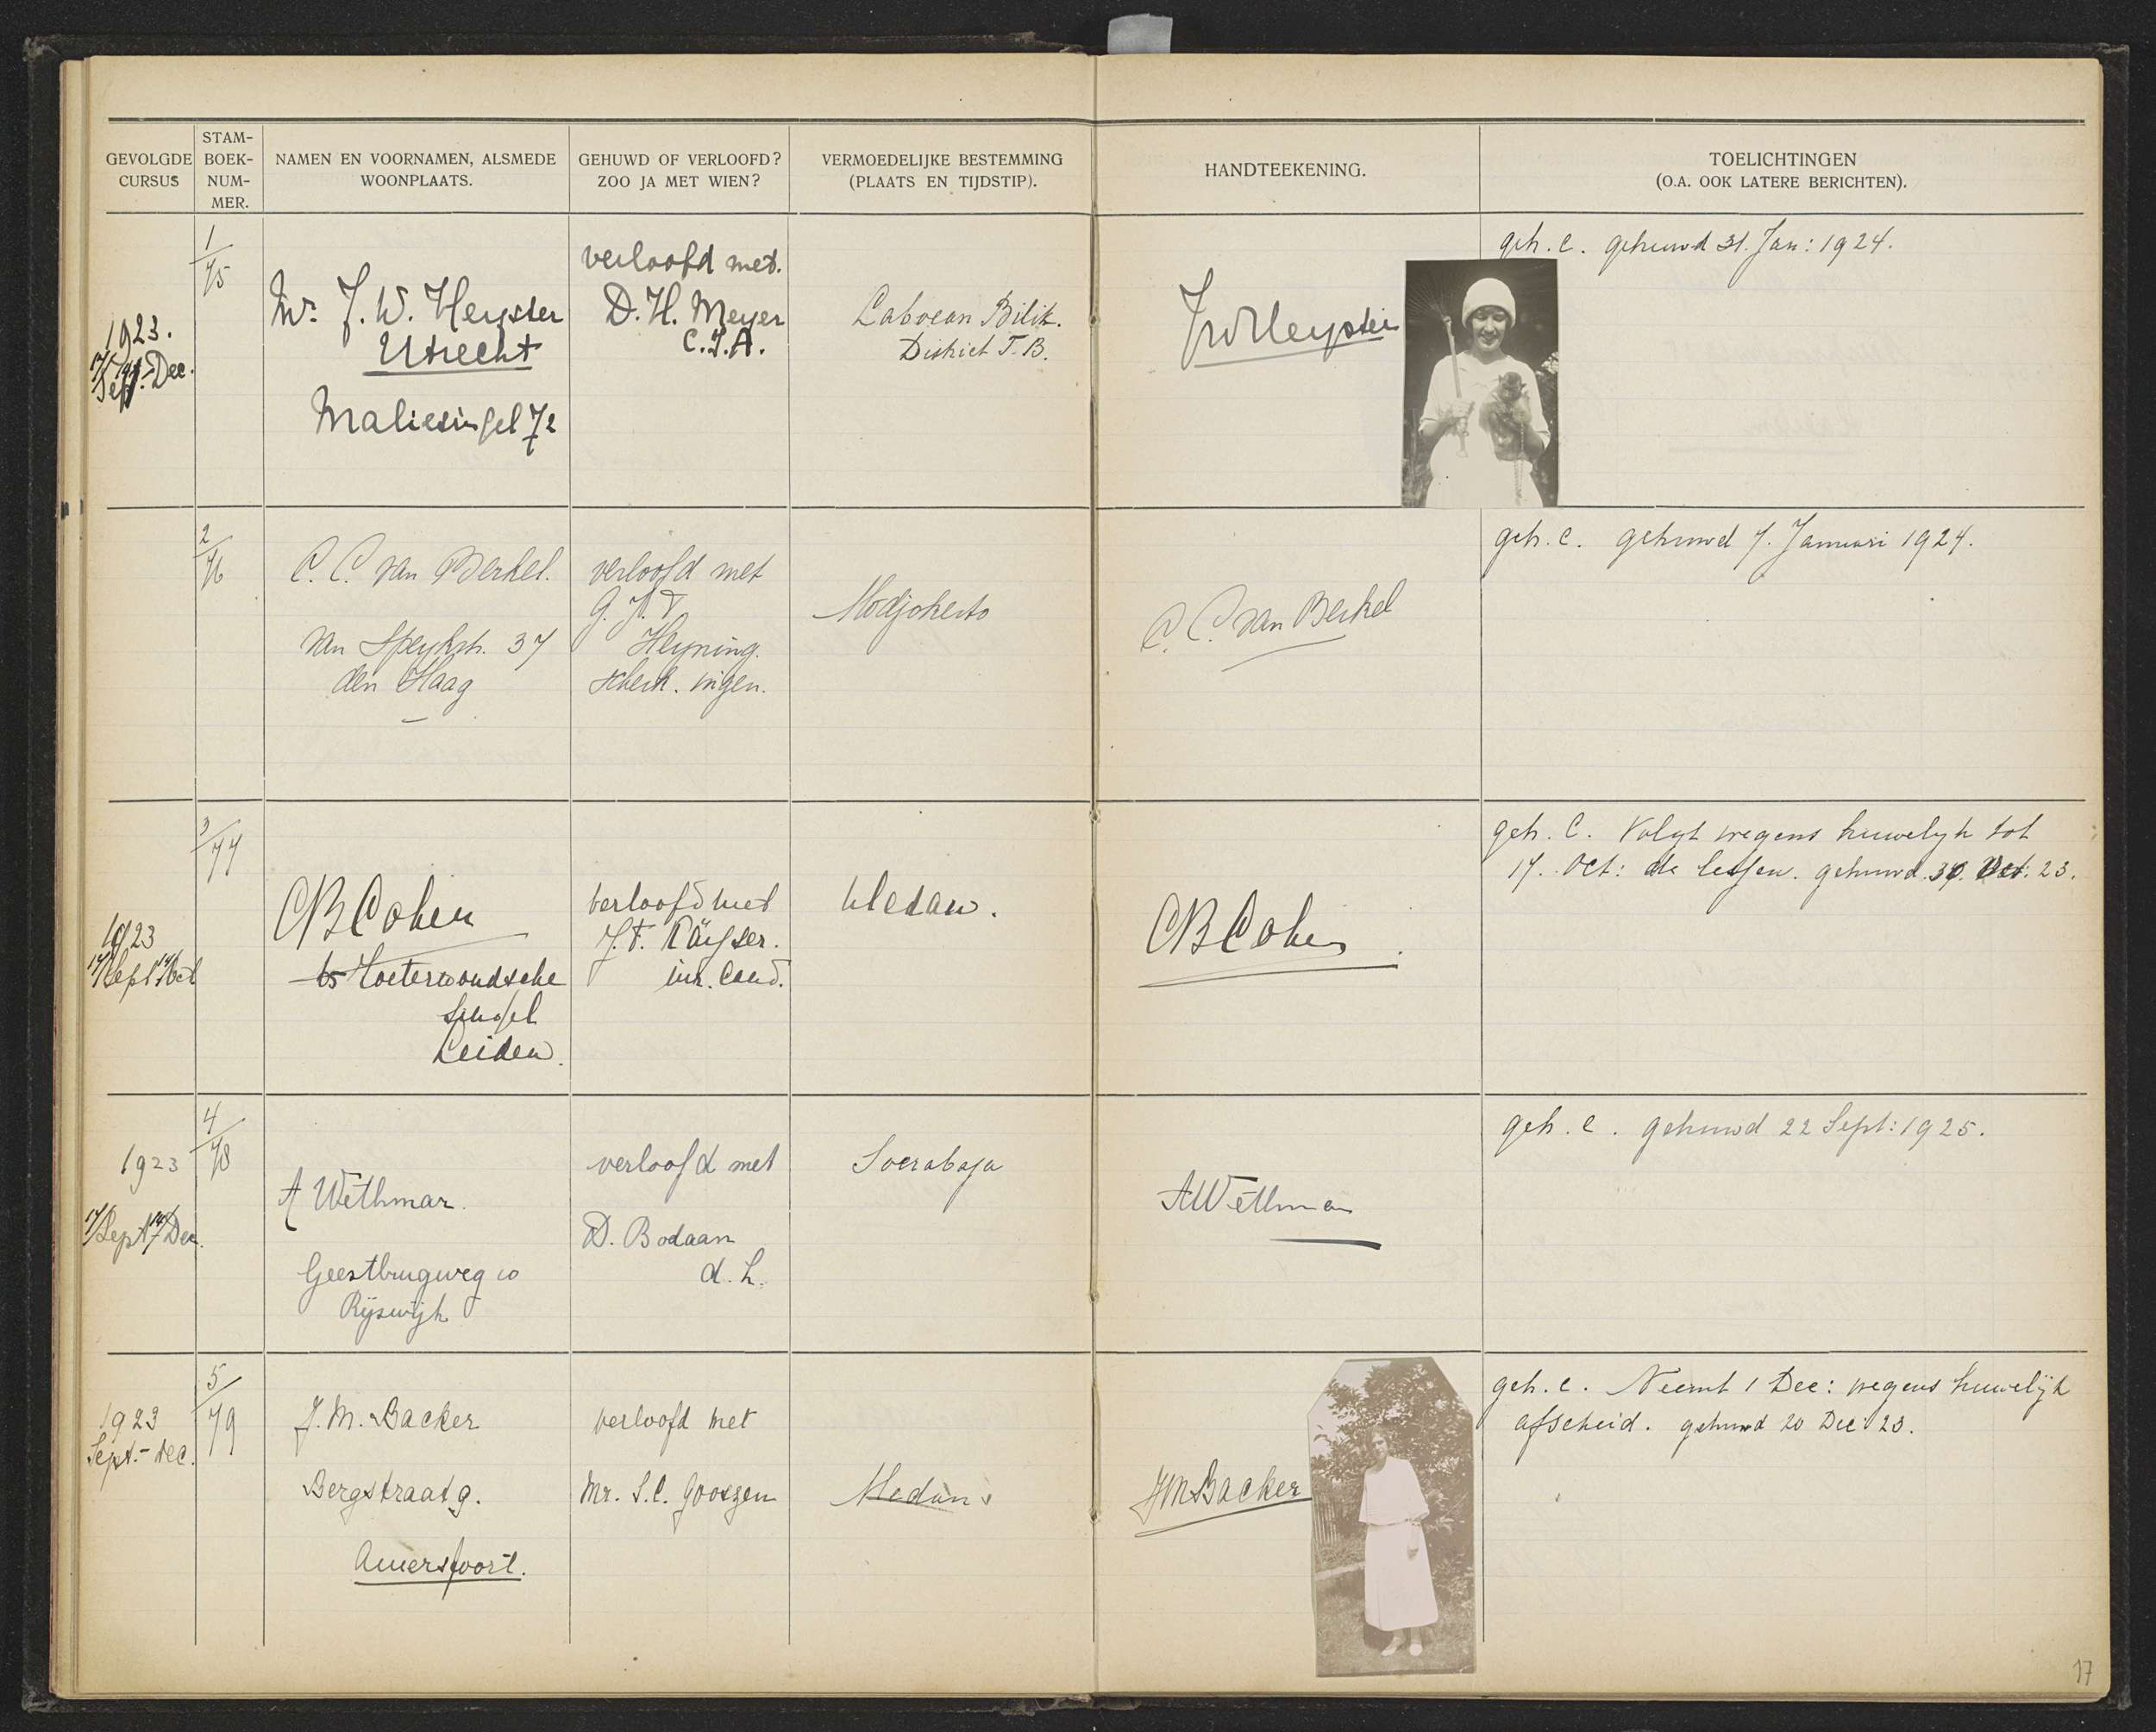 GEVOLGDE CURSUS
STAM-BOEK-NUM-MER.
NAMEN EN VOORNAMEN, ALSMEDE WOONPLAATS.
GEHUWD OF VERLOOFD? ZOO JA MET WIEN?
VERMOEDELIJKE BESTEMMING (PLAATS EN TIJDSTIP).
HANDTEEKENING.
TOELICHTINGEN (O.A. OOK LATERE BERICHTEN).
1923.
Sept.-Dec.
1/75
J. W. Heyster
Utrecht
Maliesingel 72
verloofd met.
D. H. Meyer
C.I.A.
Laboean Bilik.
District T. B.
JWHeyster
geh. c. gehuwd 31. Jan: 1924.
2/76
C. C. van Berkel.
van Speykstr. 37
den Haag
verloofd met
Heyning.
scheik. ingen.
Modjokerto
C. C. van Berkel
geh. c. gehuwd 7. Januari 1924.
1923
17/Sept 17/Oct
3/77
CB Cohen
Zoeterwoudsche
Singel
Leiden.
verloofd met
J. F. Käyser.
iur. cand.
Medan.
CB Cohen
geh. C. Volgt wegens huwelijk tot
17. Oct: de lessen. gehuwd 30. Oct. 23.
1923
17/Sept 14/Dec.
4/78
A Wethmar.
Geestbrugweg 10
Rijswijk
verloofd met
D. Bodaan
d. L.
Soerabaja
AWethmar
geh. c. gehuwd 22 Sept: 1925.
1923
Sept.- Dec.
5/79
J. M. Backer
Bergstraat 9.
Amersfoort.
verloofd met
Mr. S. C. Gooszen
Medan
JMBacker
geh. c. Neemt 1 Dec: wegens huwelijk
afscheid. gehuwd 20 Dec: 23.
17